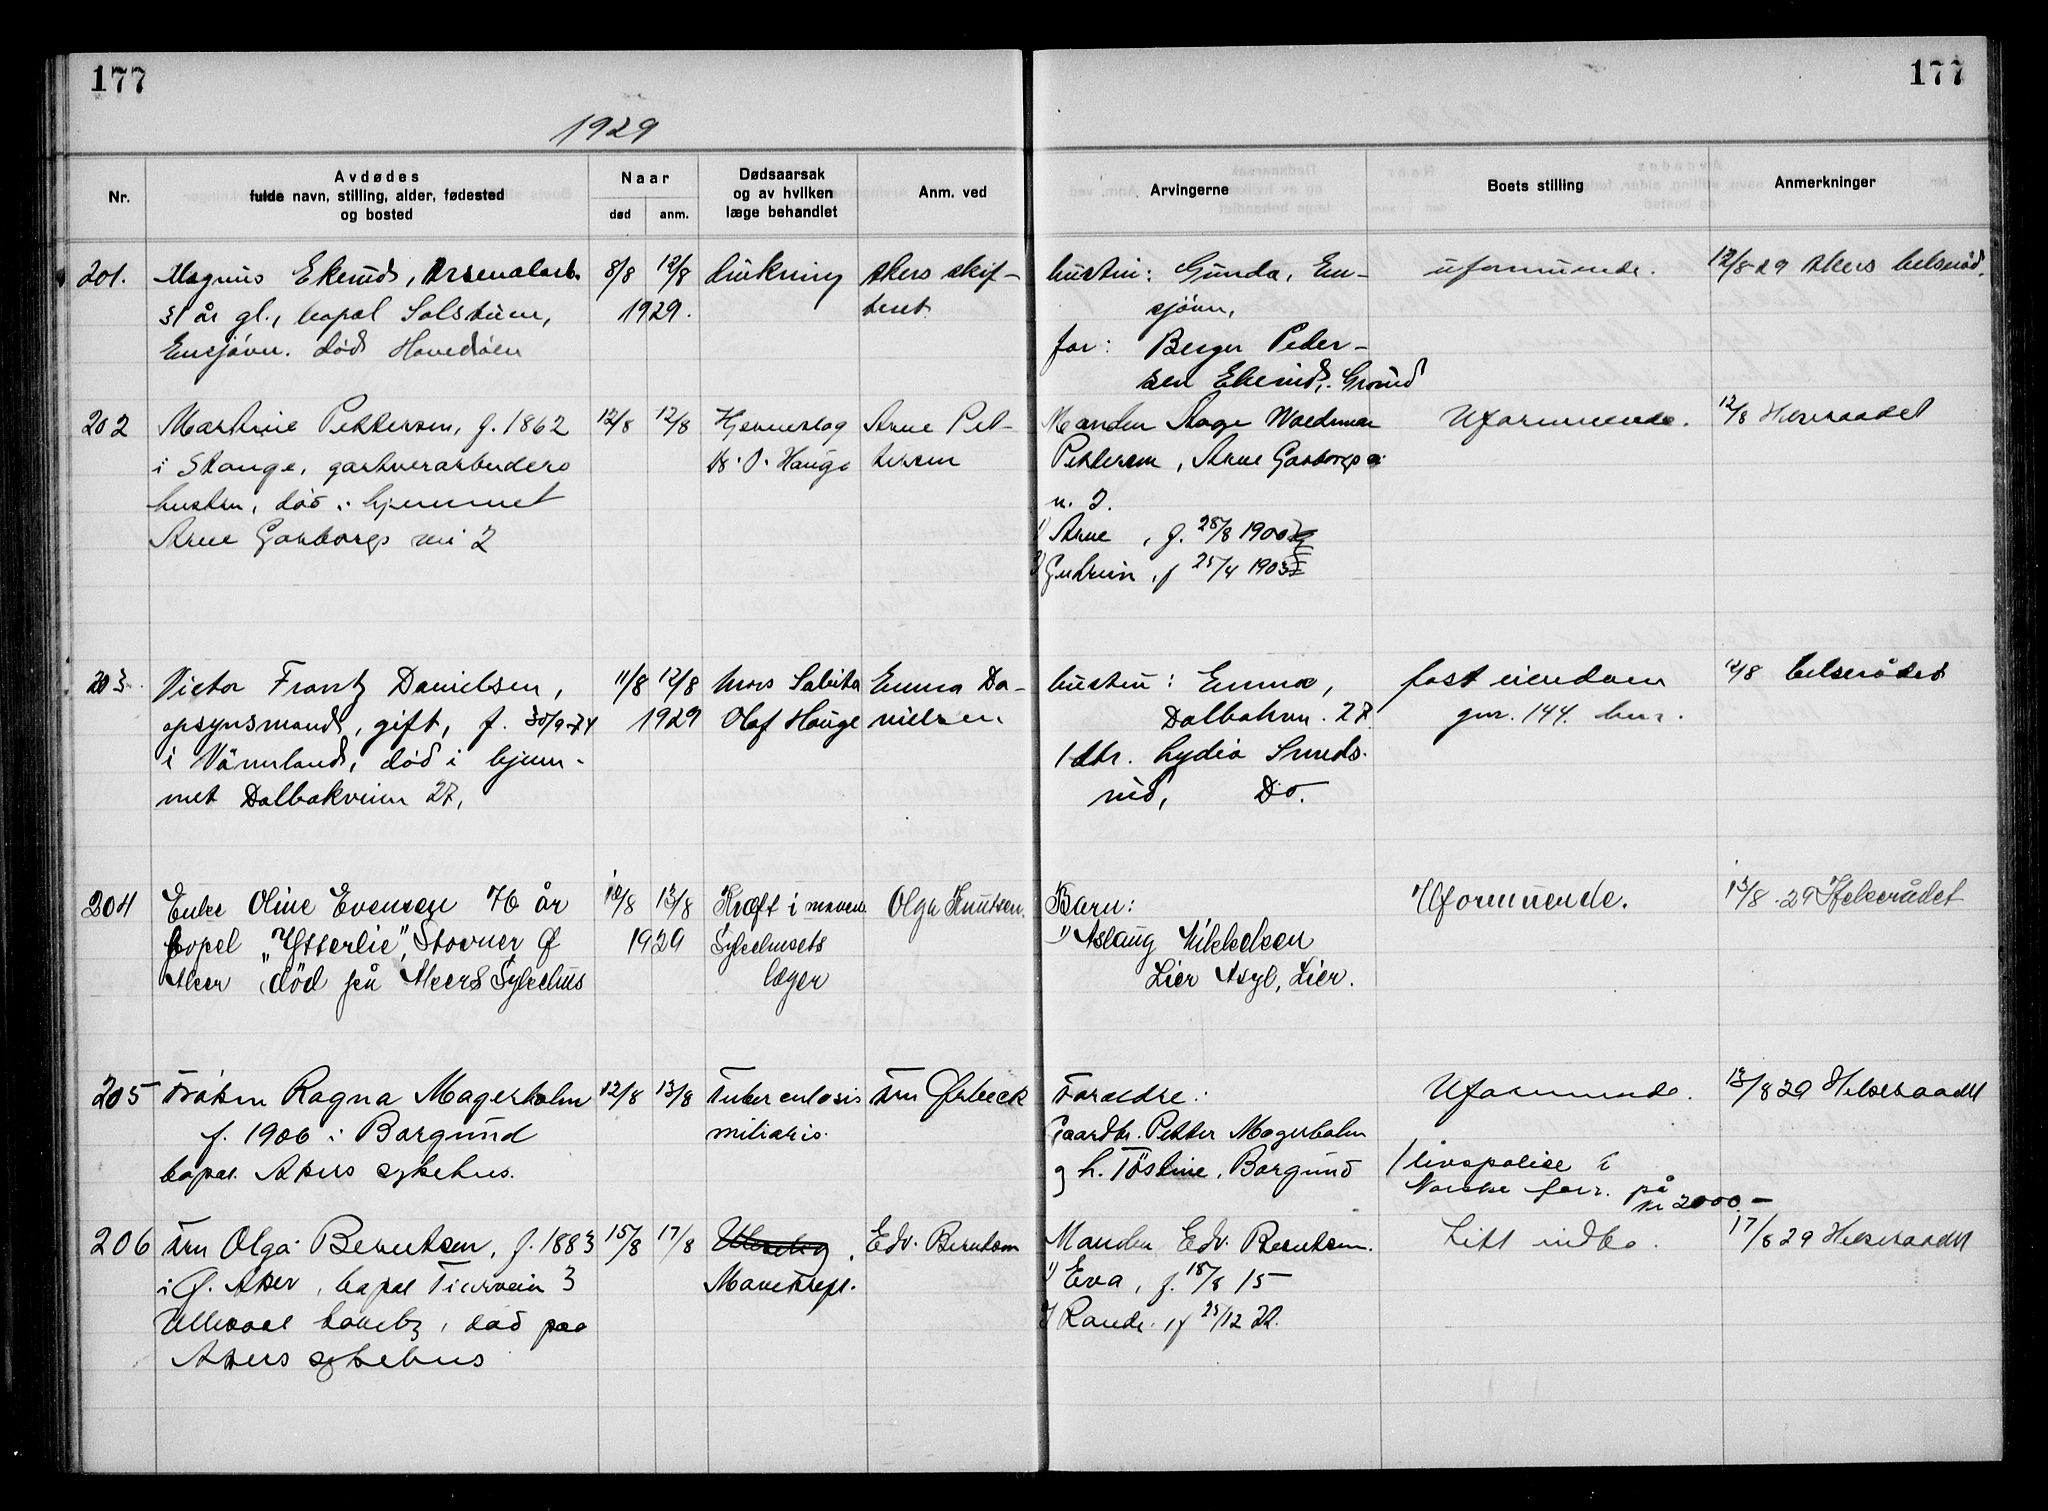 177
177
1929
Nr.
Avdødes
fulde navn, stilling, alder, fødested
og bosted
Naar
død
anm.
Dødsaarsak
og av hvilken
læge behandlet
Anm. ved
Arvingerne
Boets stilling
Anmerkninger
201.
Magnus Ekerud, Arsenalarb.
31 år gl., bopal Solstuen,
Ensjøvn. død Hovedøen
8/8
12/8
1929.
drukning
Akers skif-
teret
hustru: Gunda, En-
sjøvn,
far: Berger Peder-
sen Ekerud, Grorud
uformuende.
12/8-29 Akers helseråd.
202
Martine Pettersen, f. 1862
i Stange, gartverarbeiders
hustru, død i hjemmet
Arne Garborgs vei 2
12/8
12/8
Hjerneslag
O. Hauge
Arne Pet-
tersen
Manden Aage Waldemar
Pettersen, Arne Garborgs
v. 2.
1) Arne, f. 28/8 1900
2) Gudrun, f 25/4 1903
Uformuende.
12/8 Helseraadet
203.
Victor Frantz Danielsen,
opsynsmand, gift, f. 30/9-74
i Värmland, død i hjem-
met Dalbakveien 27,
11/8
12/8
1929
Mors Subita
Olaf Hauge
Emma Da-
nielsen
hustru: Emma,
Dalbakvn. 27.
1 dtr. Lydia Smeds-
rud, Do.
fast eiendom
gnr. 144. bnr.
12/8 helserådet
204
Enke Oline Evensen 76 år
bopel "Ytterlie", Stovner Ø
Aker, død på Akers Sykehus
10/8
13/8
1929
Kræft i maven.
Sykehusets
læger
Olga Knutsen.
Barn:
1) Aslaug Mikkelsen
Lier Asyl, Lier.
Uformuende.
13/8-29 Helserådet
205
Frøken Ragna Magerholm
f. 1906 i Borgund
bopæl Akers sykehus.
12/8
13/8
Tuberculosis
miliaris.
Fru Ørbeck
Forældre:
Gaardbr. Petter Magerholm
og h. Jøstine, Borgund
Uformuende.
1 livspolise i
Norske forr. på
kr 2000.-
13/8 29 Helseraadet
206
Fru Olga Berntsen, f. 1883
i Ø. Aker, bopæl Tiurveien 3
Ullevaal haveby, død paa
Akers sykehus
15/8
17/8
Mavekræft.
Edv. Berntsen
Manden Edv. Berntsen.
1) Eva, f. 18/8 15
2) Randi, f 25/12 22.
Litt indbo.
17/8 29 Helseraadet